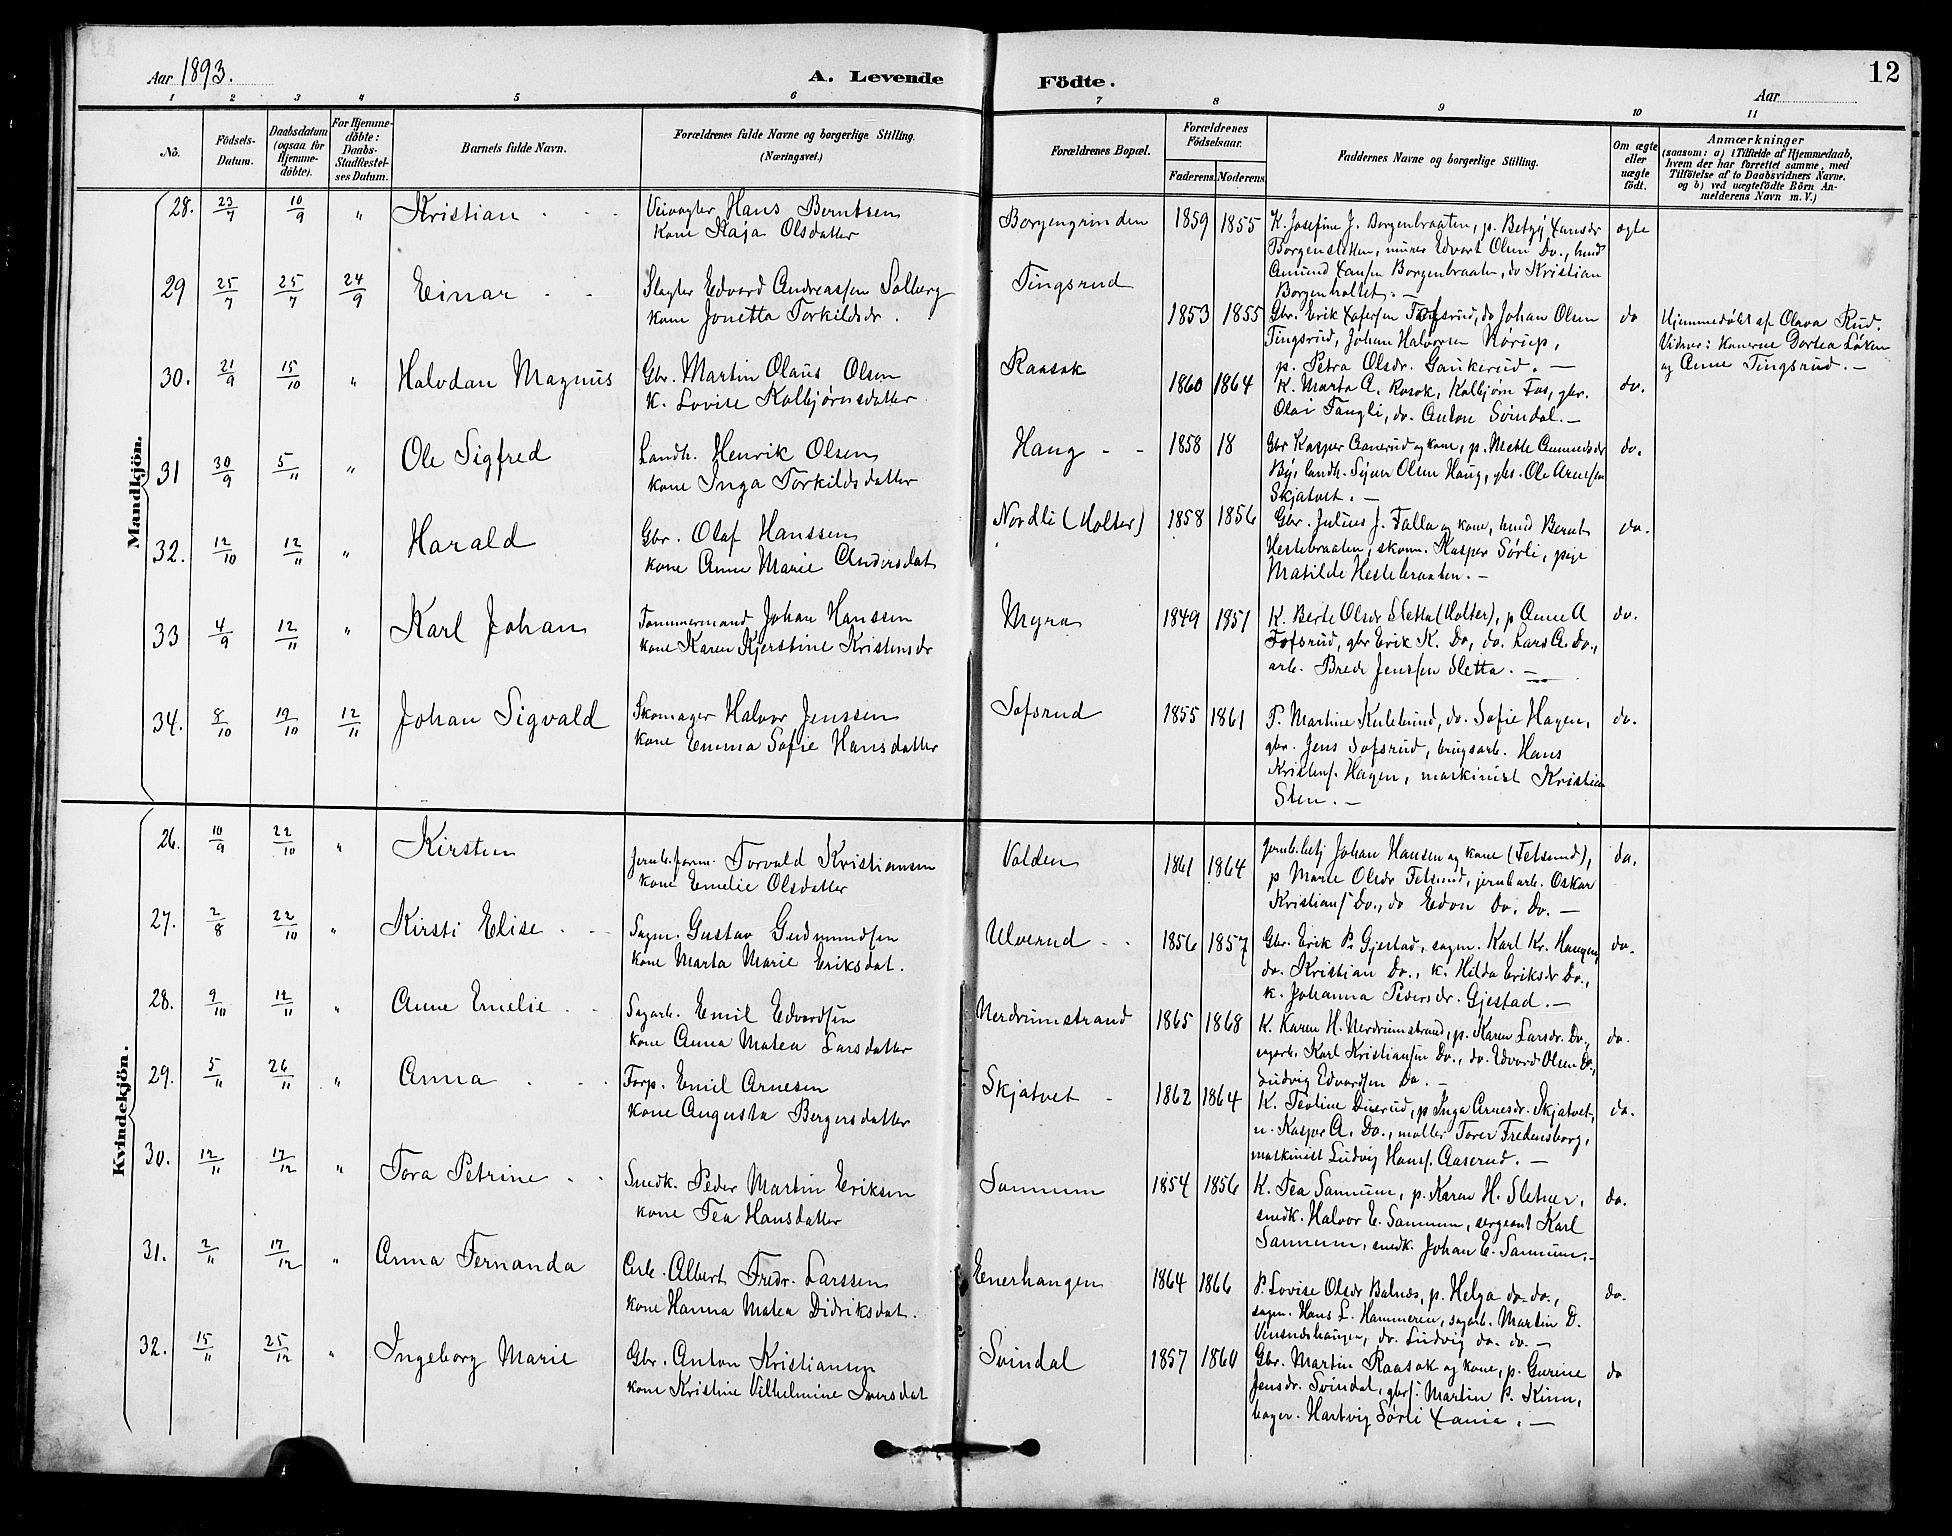 12
Aar 1893.
A. Levende Födte.
Aar
1 2 3 4 5 6 7 8 9 10 11
No. Födsels-Datum. Daabsdatum (ogsaa for Hjemme-döbte). For Hjemme-döbte: Daabs-Stadfæstel-ses Datum. Barnets fulde Navn. Forældrenes fulde Navne og borgerlige Stilling. (Næringsvei.) Forældrenes Bopæl. Forældrenes Födselsaar. Faderens. Moderens. Faddernes Navne og borgerlige Stilling. Om ægte eller uægte födt. Anmærkninger (saasom: a) i Tilfælde af Hjemmedaab, hvem der har forrettet samme, med Tilföielse af to Daabsvidners Navne. og b) ved uægtefödte Börn An-melderens Navn m. V.)
Mandkjön.
28. 23/7 10/9 " Kristian Veivogter Hans Berntsen Borgengrinden 1859 1855 K. Josefine J. Borgenbraaten, p. Betzÿ Hansdr ægte
kone Kaja Olsdatter Borgensletten, murer Edvart Olsen Do., huusd
Amund Hansen Borgenbraaten, do Kristian
Borgenholtet. —
29 25/7 25/7 24/9 Einar Slagter Edvard Andreassen Solberg Tingsrud 1853 1855 Gbr. Erik Tofsrud, do Johan Olsen do Hjemmedøbt af Olava Rud.
kone Jonetta Torkildsdr. Tingsrud, Johan Halvorsen Kørup, Vidner: konerne Dortea Løken
p. Petra Olsdr. Gaukerud. — og Anne Tingsrud. —
30. 21/9 15/10 " Halvdan Magnus Gbr. Martin Olaus Olsen Raasok 1860 1864 K. Marta A. Rasok, Kolbjørn Fos, gbr. do.
k. Lovise Kolbjørnsdatter Olai Tangli, do. Anton Svindal. —
31 30/9 5/11 " Ole Sigfred Landh. Henrik Olsen Haug 1858 18 Gbr Kasper Aanerud og kone, p. Mette Amundsdr do.
kone Inga Torkildsdatter By, landh. Syver Olsen Haug, gbs. Ole Arnessen
Skjatvet. —
32. 12/10 12/11 " Harald Gbr. Olaf Hanssen Nordli (Holter) 1858 1856 Gbr. Julius J. Falla og kone, huusd Bernt do.
kone Anne Marie Andersdat Hestebraaten, skom. Kasper Sørli, pige
Matilde Hestebraaten. —
33 4/9 12/11 " Karl Johan Tømmermand Johan Hanssen Myra 1849 1857 K. Berte Olsdr Sletta (Holter), p Anne A do.
kone Karen Kjerstine Kristensdr Tofsrud, gbr Erik K. Do, do. Lars A. Do.,
arb. Brede Jenssen Sletta. —
34. 8/10 19/10 12/11 Johan Sigvald Skomager Halvor Jenssen Sofsrud 1855 1861 P. Martine Kulsrud, do. Sofie Hagen, do.
kone Emma Sofie Hansdatter gbr. Jens Sofsrud, brugsarb. Hans
Kristens. Hagen, maskinist Kristian
Sten. —
Kvindekjön.
26. 10/9 22/10 " Kirsten Jernb.form. Torvald Kristiansen Volden 1861 1864 Jernb.betj Johan Hansen og kone (Fetsund), do.
kone Emelie Olsdatter p Marie Olsdr Fetsund, jernb.arb. Oskar
Kristians Do., do Edon Do. Do. —
27. 2/8 22/10 " Kirsti Elise Sagm. Gustav Gudmundsen Ulverud 1856 1857 Gbr. Erik P. Gjestad, sagm. Karl Kr. Haugen, do.
kone Marta Marie Eriksdat. do. Kristian Do., k. Hilda Eriksdr Do.,
k. Johanna Pedersdr. Gjestad. —
28. 9/10 12/11 " Anne Emelie Sagarb. Emil Edvardsen Nerdrumstrand 1865 1868 K. Karen H. Nerdrumstrand, p. Karen Larsdr. Do., do.
kone Anna Matea Larsdatter sagarb. Karl Kristiansen Do., do. Edvard Olsen Do.,
Ludvig Edvardsen Do. —
29. 5/11 26/11 " Anna Forp. Emil Arnesen Skjatvet 1862 1864 K. Teoline Duerud, p Inga Arnesdr. Skjatvet, do.
kone Augusta Bergersdatter u. Kasper A. Do., møller Torer Fredensborg,
maskinist Ludvig Hans. Aaserud. —
30. 12/11 17/12 " Tora Petrine Snedk. Peder Martin Eriksen Sannum 1854 1856 K. Tea Sannum, p. Karen H. Sletner, do.
kone Tea Hansdatter snedk. Halvor E. Sannum, sergeant Karl
Sannum, snedk. Johan E. Sannum. —
31. 2/11 17/12 " Anna Fernanda Arb. Albert Fredr. Larssen Enerhaugen 1864 1866 P. Lovise Olsdr Balnæs, p. Helga do. do., do.
kone Hanna Matea Didriksdat. sagm. Hans L. Hammeren, sagarb. Martin D.
do. Ludvig do. do. —
32. 15/11 25/12 " Ingeborg Marie Gbr. Anton Kristiansen Svindal 1857 1860 Gbr. Martin Raasok og kone, p. Gurine do
kone Kristine Vilhelmine Iversdat Jensdr. Svindal, gbrs. Martin P. Kinn,
bager. Hartvig Sørli Xania. —